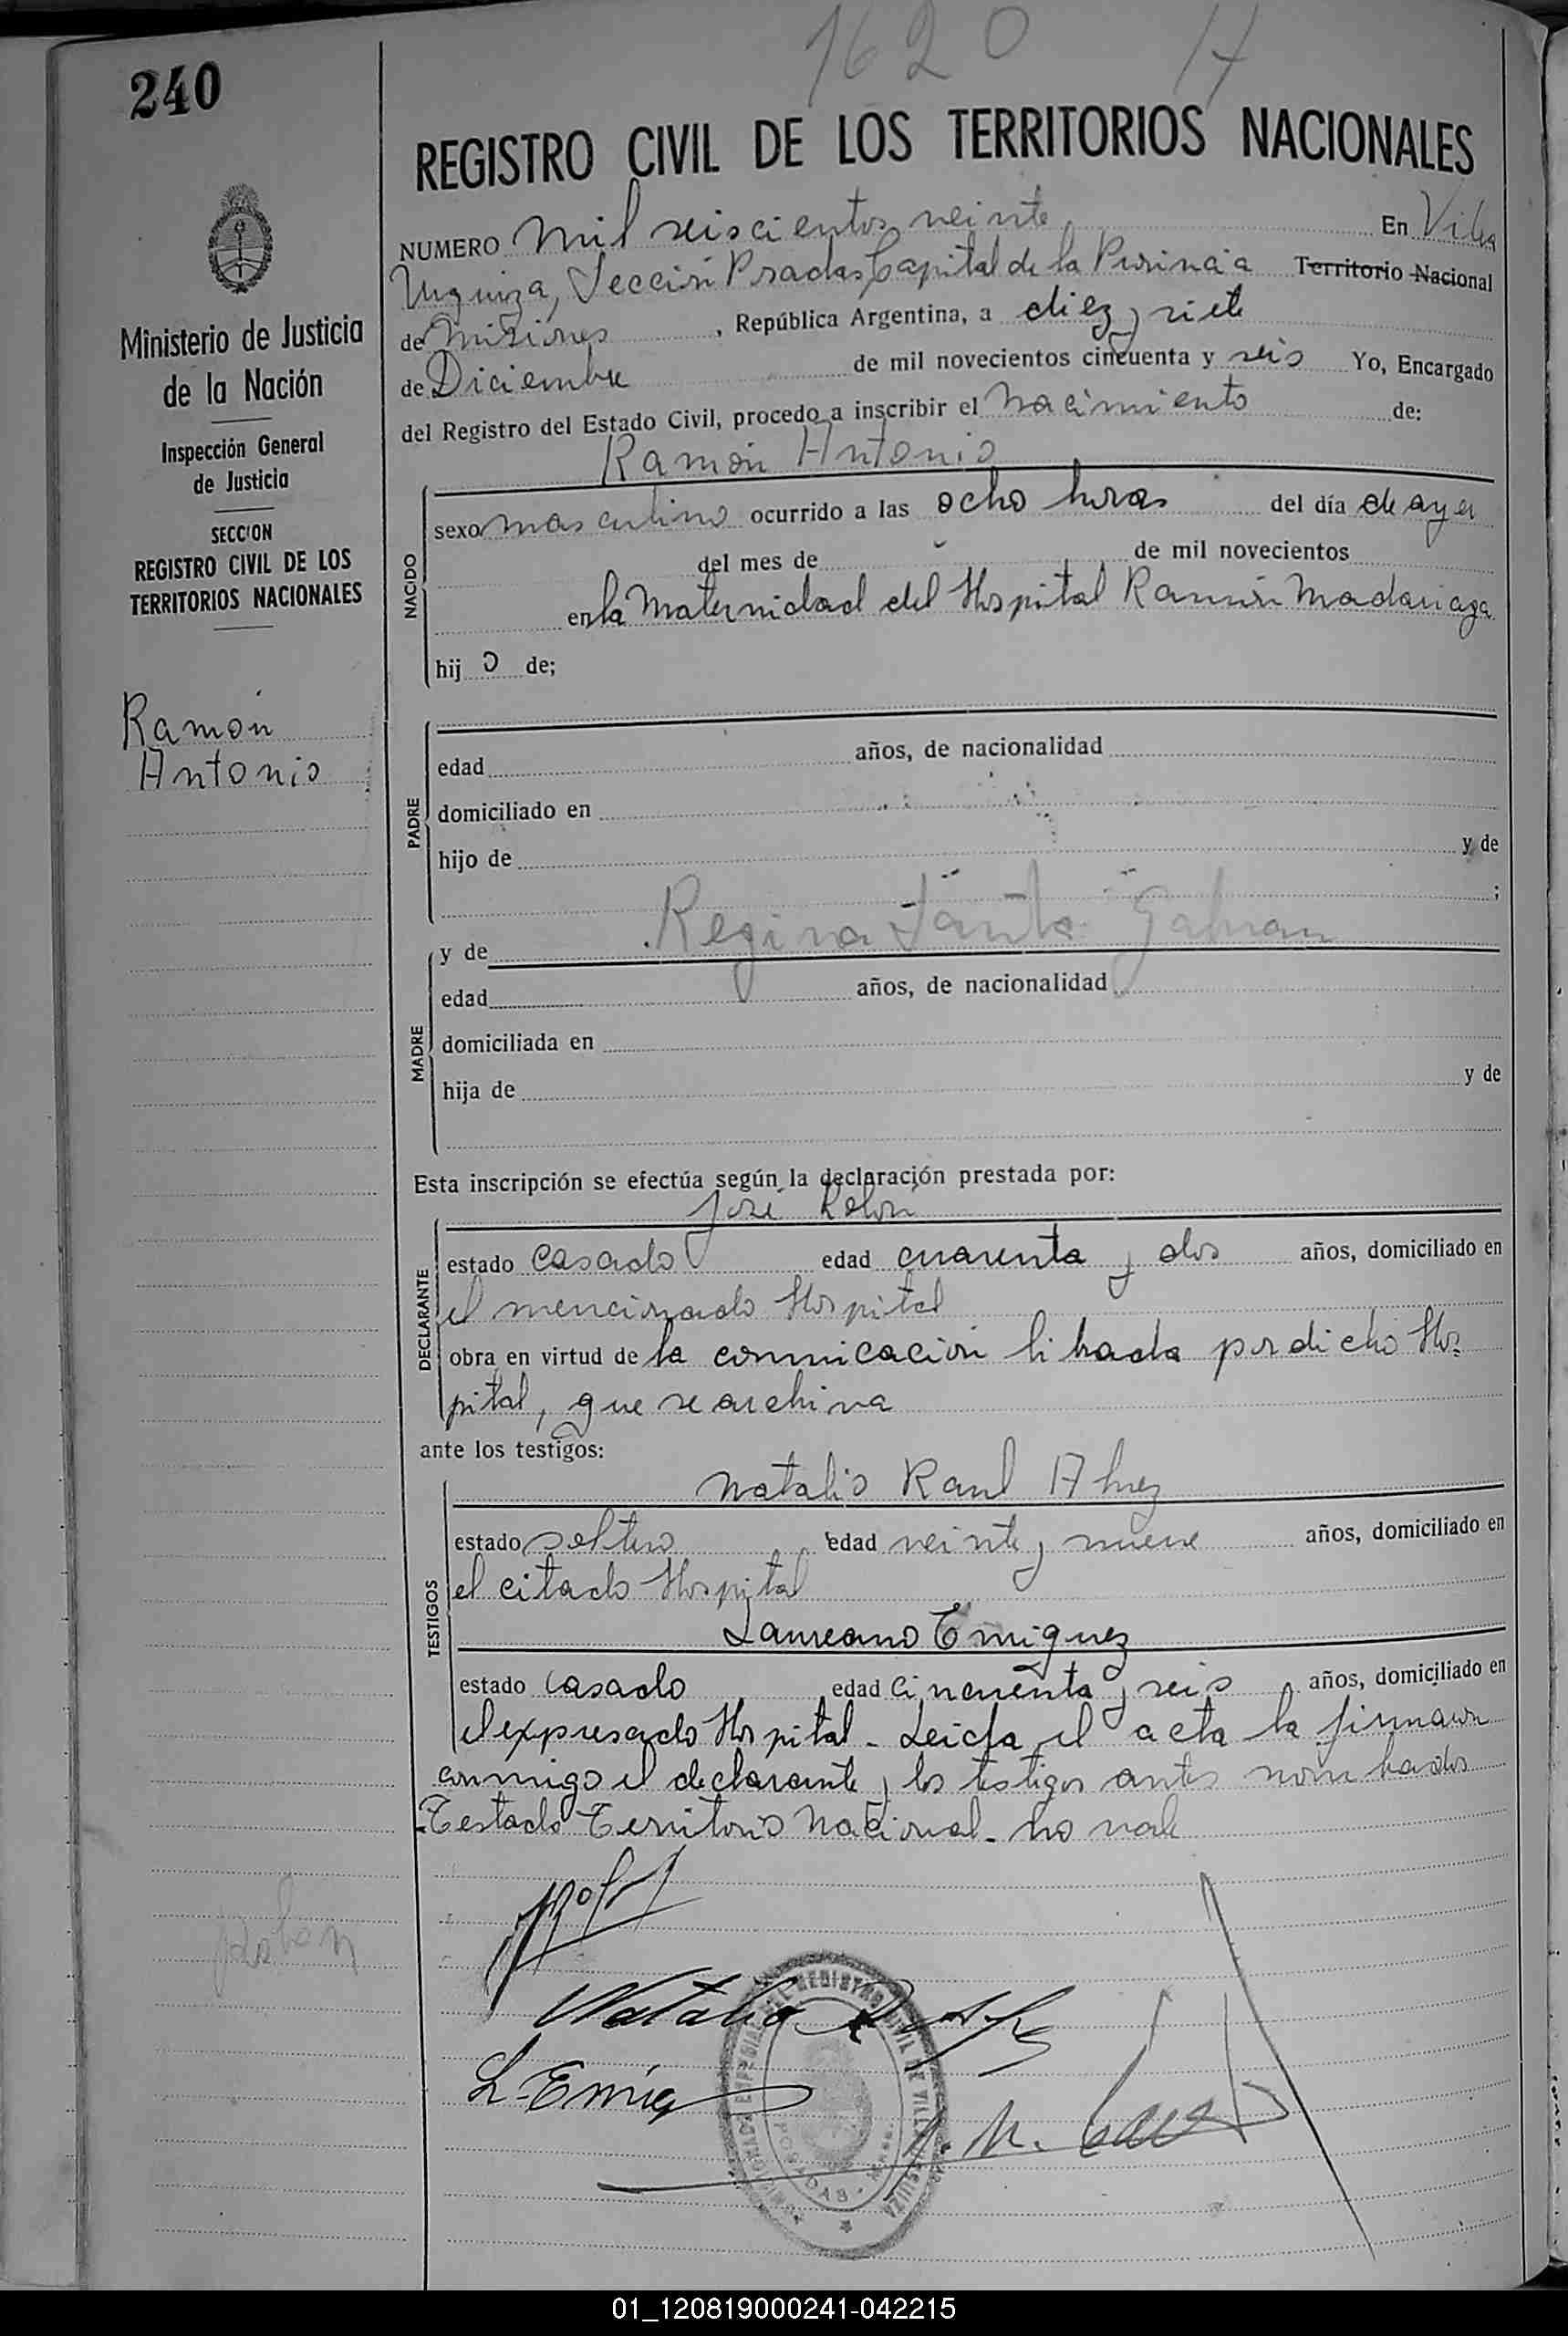 1620 H
240
REGISTRO CIVIL DE LOS TERRITORIOS NACIONALES
NUMERO Mil seiscientos veinte En Villa
Urquiza, Sección Posadas Capital de la Provincia Territorio Nacional
de Misiones, República Argentina, a diez y siete
de Diciembre de mil novecientos cincuenta y seis Yo, Encargado
del Registro del Estado Civil, procedo a inscribir el Nacimiento de:
Ramón Antonio
Ministerio de Justicia
de la Nación
Inspección General
de Justicia
SECCION
REGISTRO CIVIL DE LOS
TERRITORIOS NACIONALES
Ramón
Antonio
NACIDO
sexo masculino ocurrido a las ocho horas del día de ayer
del mes de de mil novecientos
en la Maternidad del Hospital Ramón Madariaga
hij o de;
PADRE
edad años, de nacionalidad
domiciliado en
hijo de y de
;
MADRE
y de Regina
edad años, de nacionalidad
domiciliada en
hija de y de
Esta inscripción se efectúa según la declaración prestada por:
José Rolón
DECLARANTE
estado casado edad cuarenta y dos años, domiciliado en
el mencionado Hospital
obra en virtud de la comunicación librada por dicho Hos=
pital, que se archiva
ante los testigos:
TESTIGOS
Natalio Raul
estado soltero edad veinte y nueve años, domiciliado en
el citado Hospital
Laureano
estado casado edad cincuenta y seis años, domiciliado en
el expresado Hospital - Leida el acta la firmaron
conmigo el declarante y los testigos antes nombrados
-Testado Territorio Nacional - no vale
Natalio
L. Emig
POSADAS
01_120819000241-042215